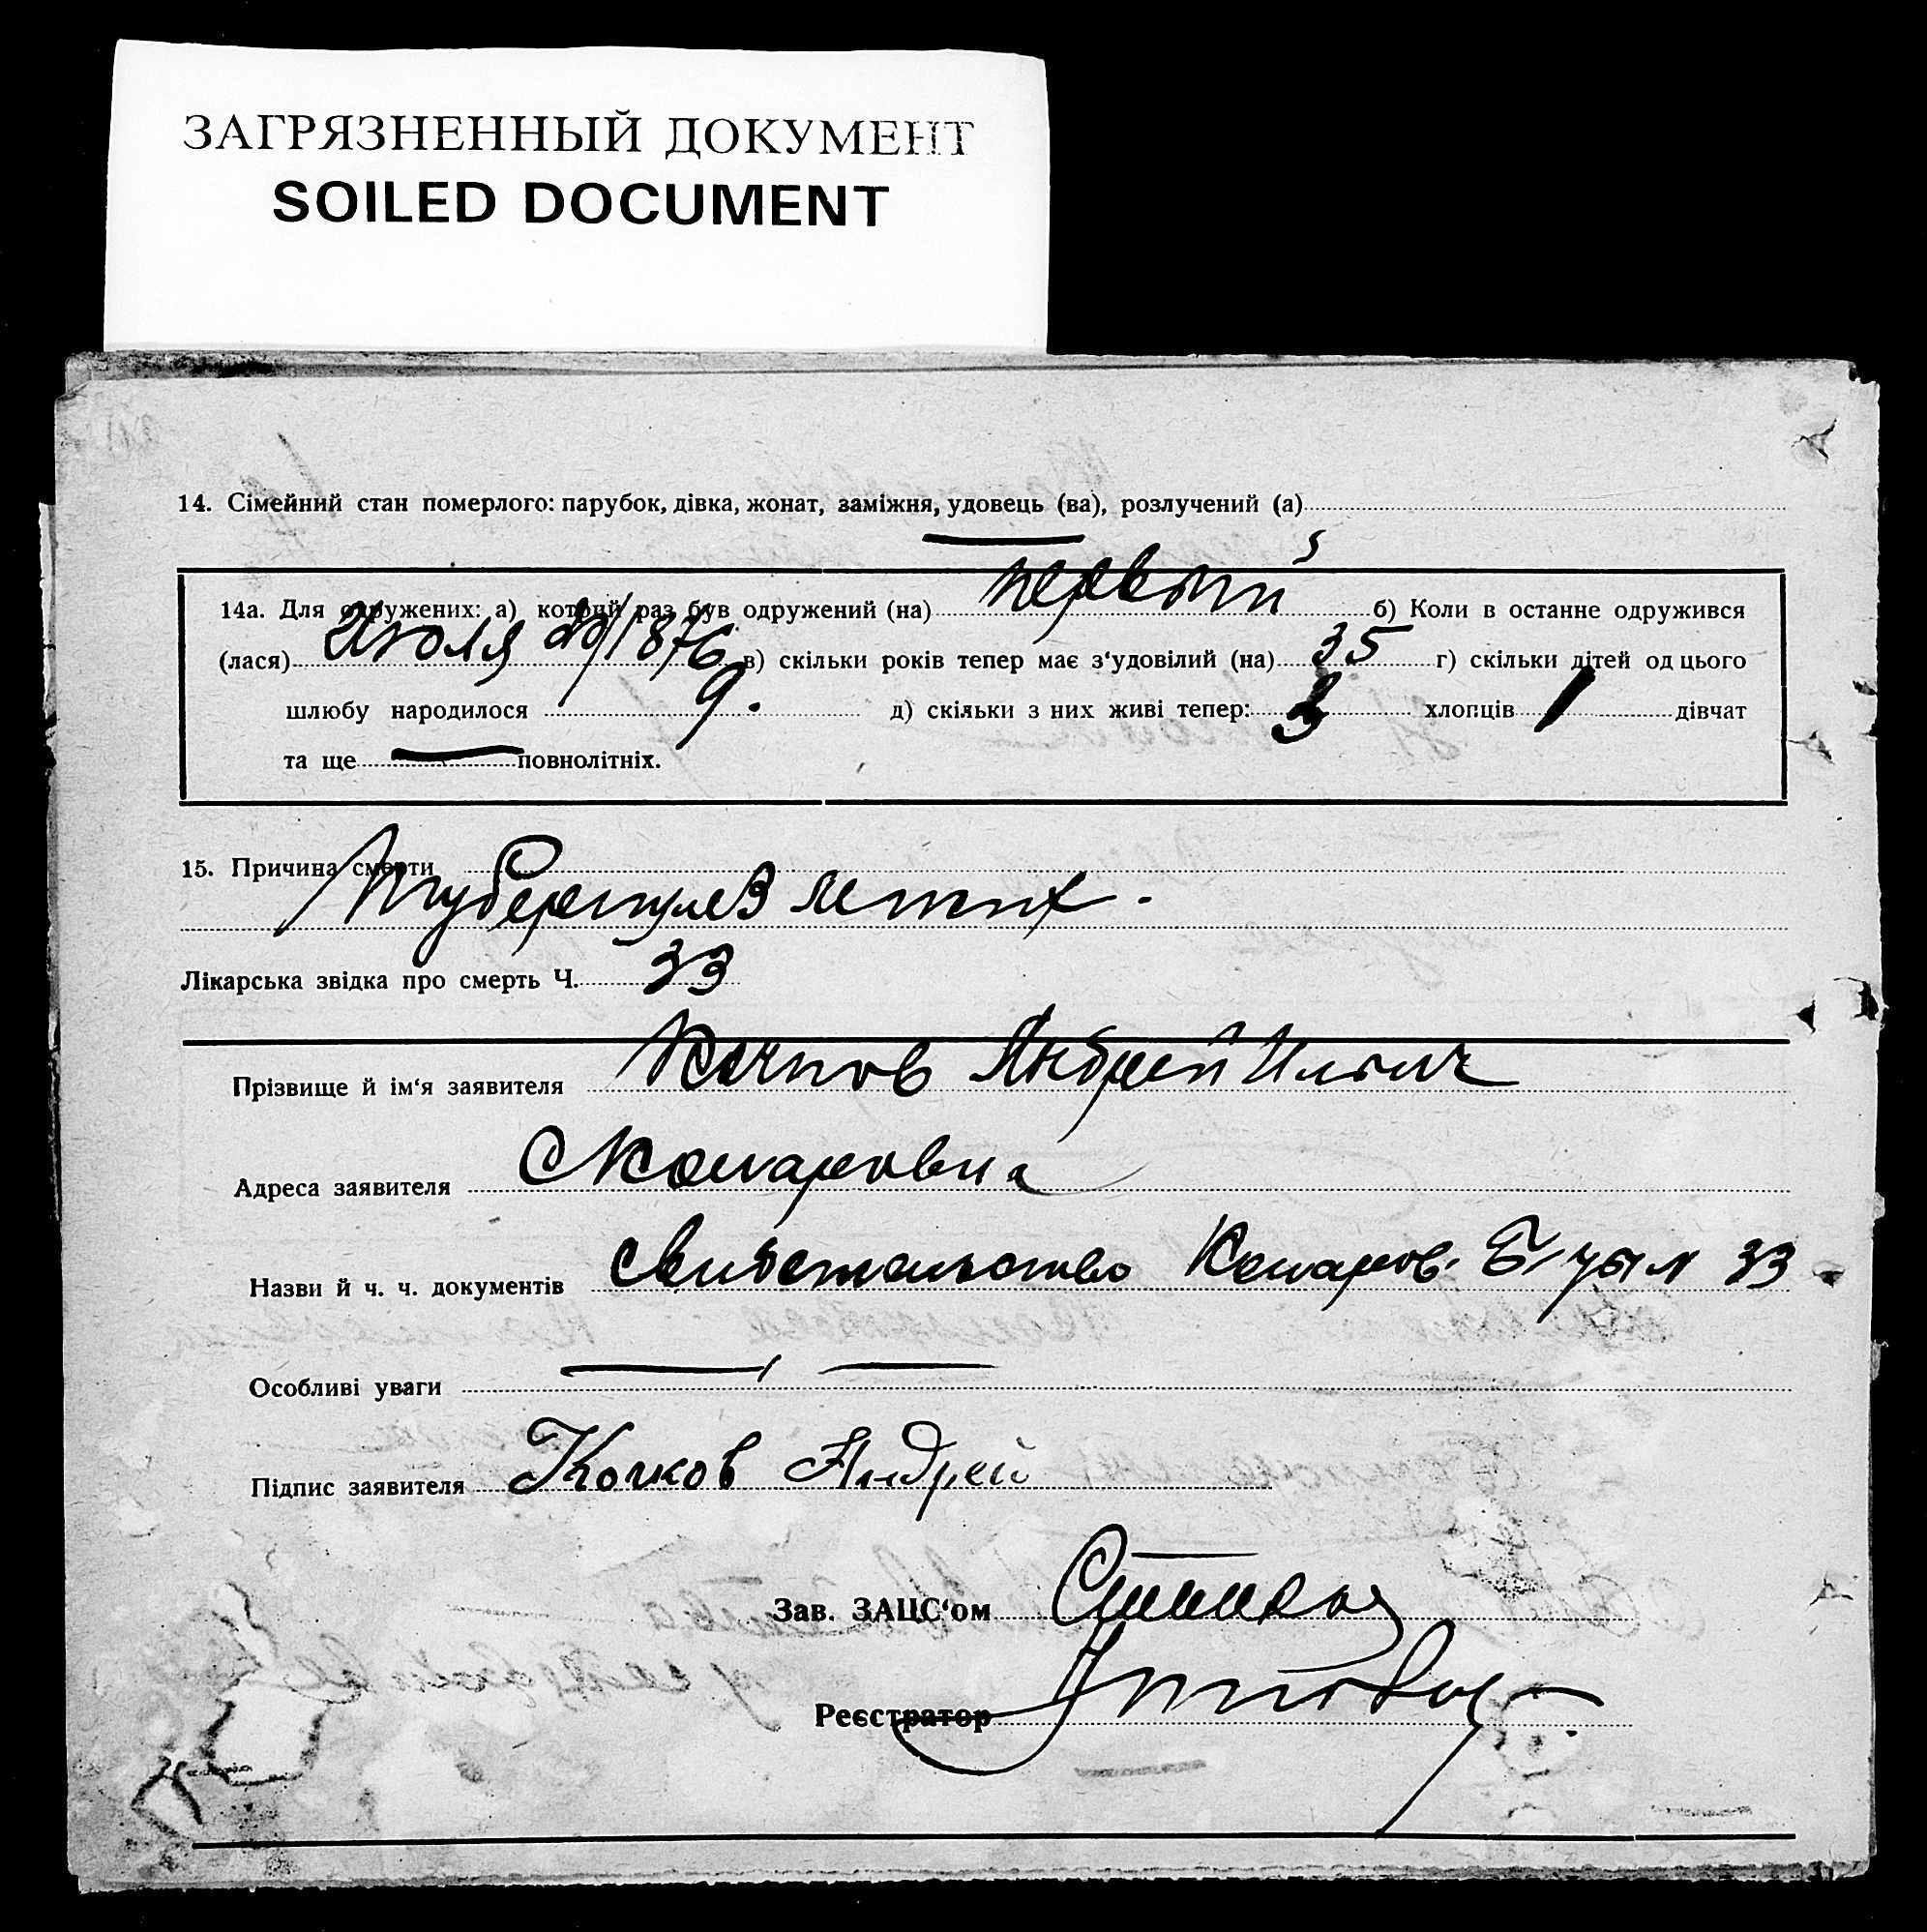 ЗАГРЯЗНЕННЫЙ ДОКУМЕНТ
SOILED DOCUMENT
14. Сімейний стан померлого: парубок, дівка, жонат, заміжня, удовець (ва), розлучений (а)
14а. Для одружених: а) котрий раз був одружений (на) первый б) Коли в останне одружився
(лася) Июля 20/1876 в) скільки років тепер має з‘удовілий (на) 35 г) скільки дітей од цього
шлюбу народилося 9. д) скільки з них живі тепер: 3 хлопців 1 дівчат
та ще — повнолітніх.
15. Причина смерти
туберкулез легких.
Лікарська звідка про смерть Ч. 33
Прізвище й ім‘я заявителя Кочков Андрей Ильич
Адреса заявителя С Комаровка
Назви й ч. ч. документів свидетельство Комаров. 33
Особливі уваги — —
Підпис заявителя Кочков Андрей
Зав. ЗАЦС‘ом
Реєстратор